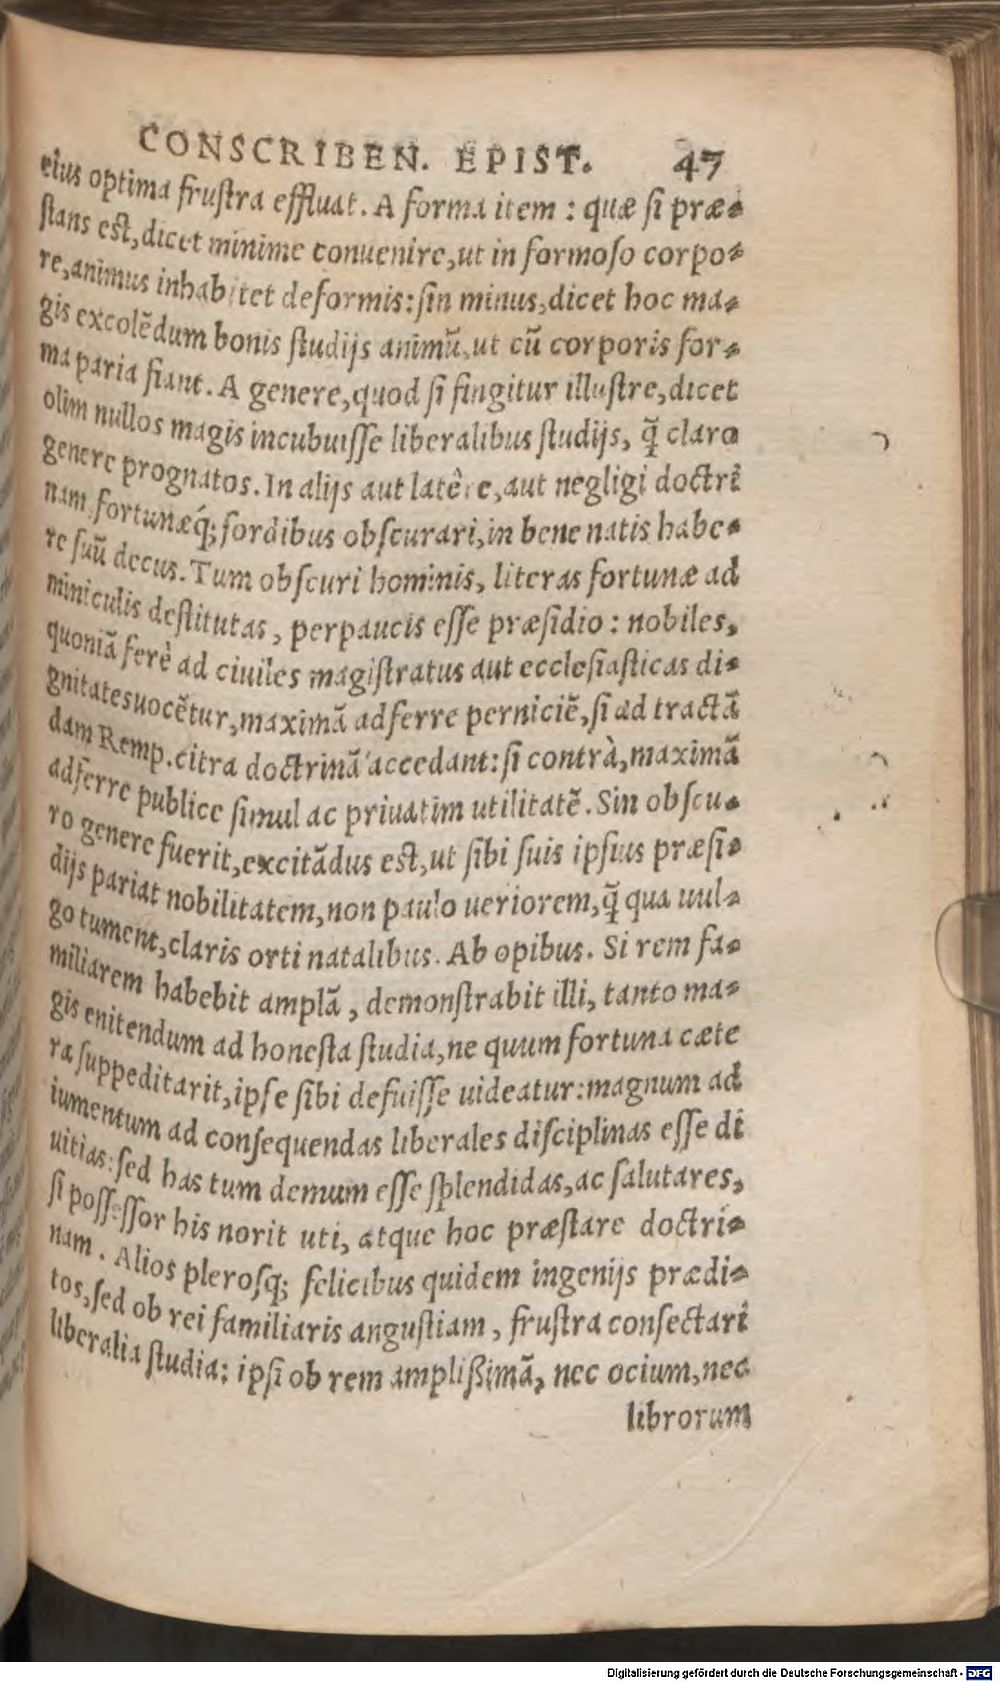 CONSCRIBEN. EPIST. 47
eius optima frustra effluat. A forma item : quæ si præ-
stans est, dicet minime conuenire, ut in formoso corpo-
re, animus inhabitet deformis: sin minus, dicet hoc ma-
gis excolēdum bonis studijs animū, ut cū corporis for-
ma paria fiant. A genere, quod si fingitur illustre, dicet
olim nullos magis incubuisse liberalibus studijs, q̃ claro
genere prognatos. In alijs aut latêre, aut negligi doctri
nam, fortunæq́; sordibus obscurari, in bene natis habe-
re suū decus. Tum obscuri hominis, literas fortunæ ad
miniculis destitutas, perpaucis esse præsidio : nobiles,
quoniā ferè ad ciuiles magistratus aut ecclesiasticas di-
gnitates uocētur, maximā adferre perniciē, si ad tractā
dam Remp. citra doctrinā accedant: si contrà, maximā
adferre publice simul ac priuatim utilitatē. Sin obscu-
ro genere fuerit, excitādus est, ut sibi suis ipsius præsi-
dijs pariat nobilitatem, non paulo ueriorem, q̃ qua uul-
go tument, claris orti natalibus. Ab opibus. Si rem fa-
miliarem habebit amplā, demonstrabit illi, tanto ma-
gis enitendum ad honesta studia, ne quum fortuna cæte
ra suppeditarit, ipse sibi defuisse uideatur: magnum ad
iumentum ad consequendas liberales disciplinas esse di
uitias: sed has tum demum esse splendidas, ac salutares,
si possessor his norit uti, atque hoc præstare doctri-
nam. Alios plerosq; felicibus quidem ingenijs prædi-
tos, sed ob rei familiaris angustiam, frustra consectari
liberalia studia: ipsi ob rem amplißimā, nec ocium, nec
librorum
Digitalisierung gefördert durch die Deutsche Forschungsgemeinschaft - DFG